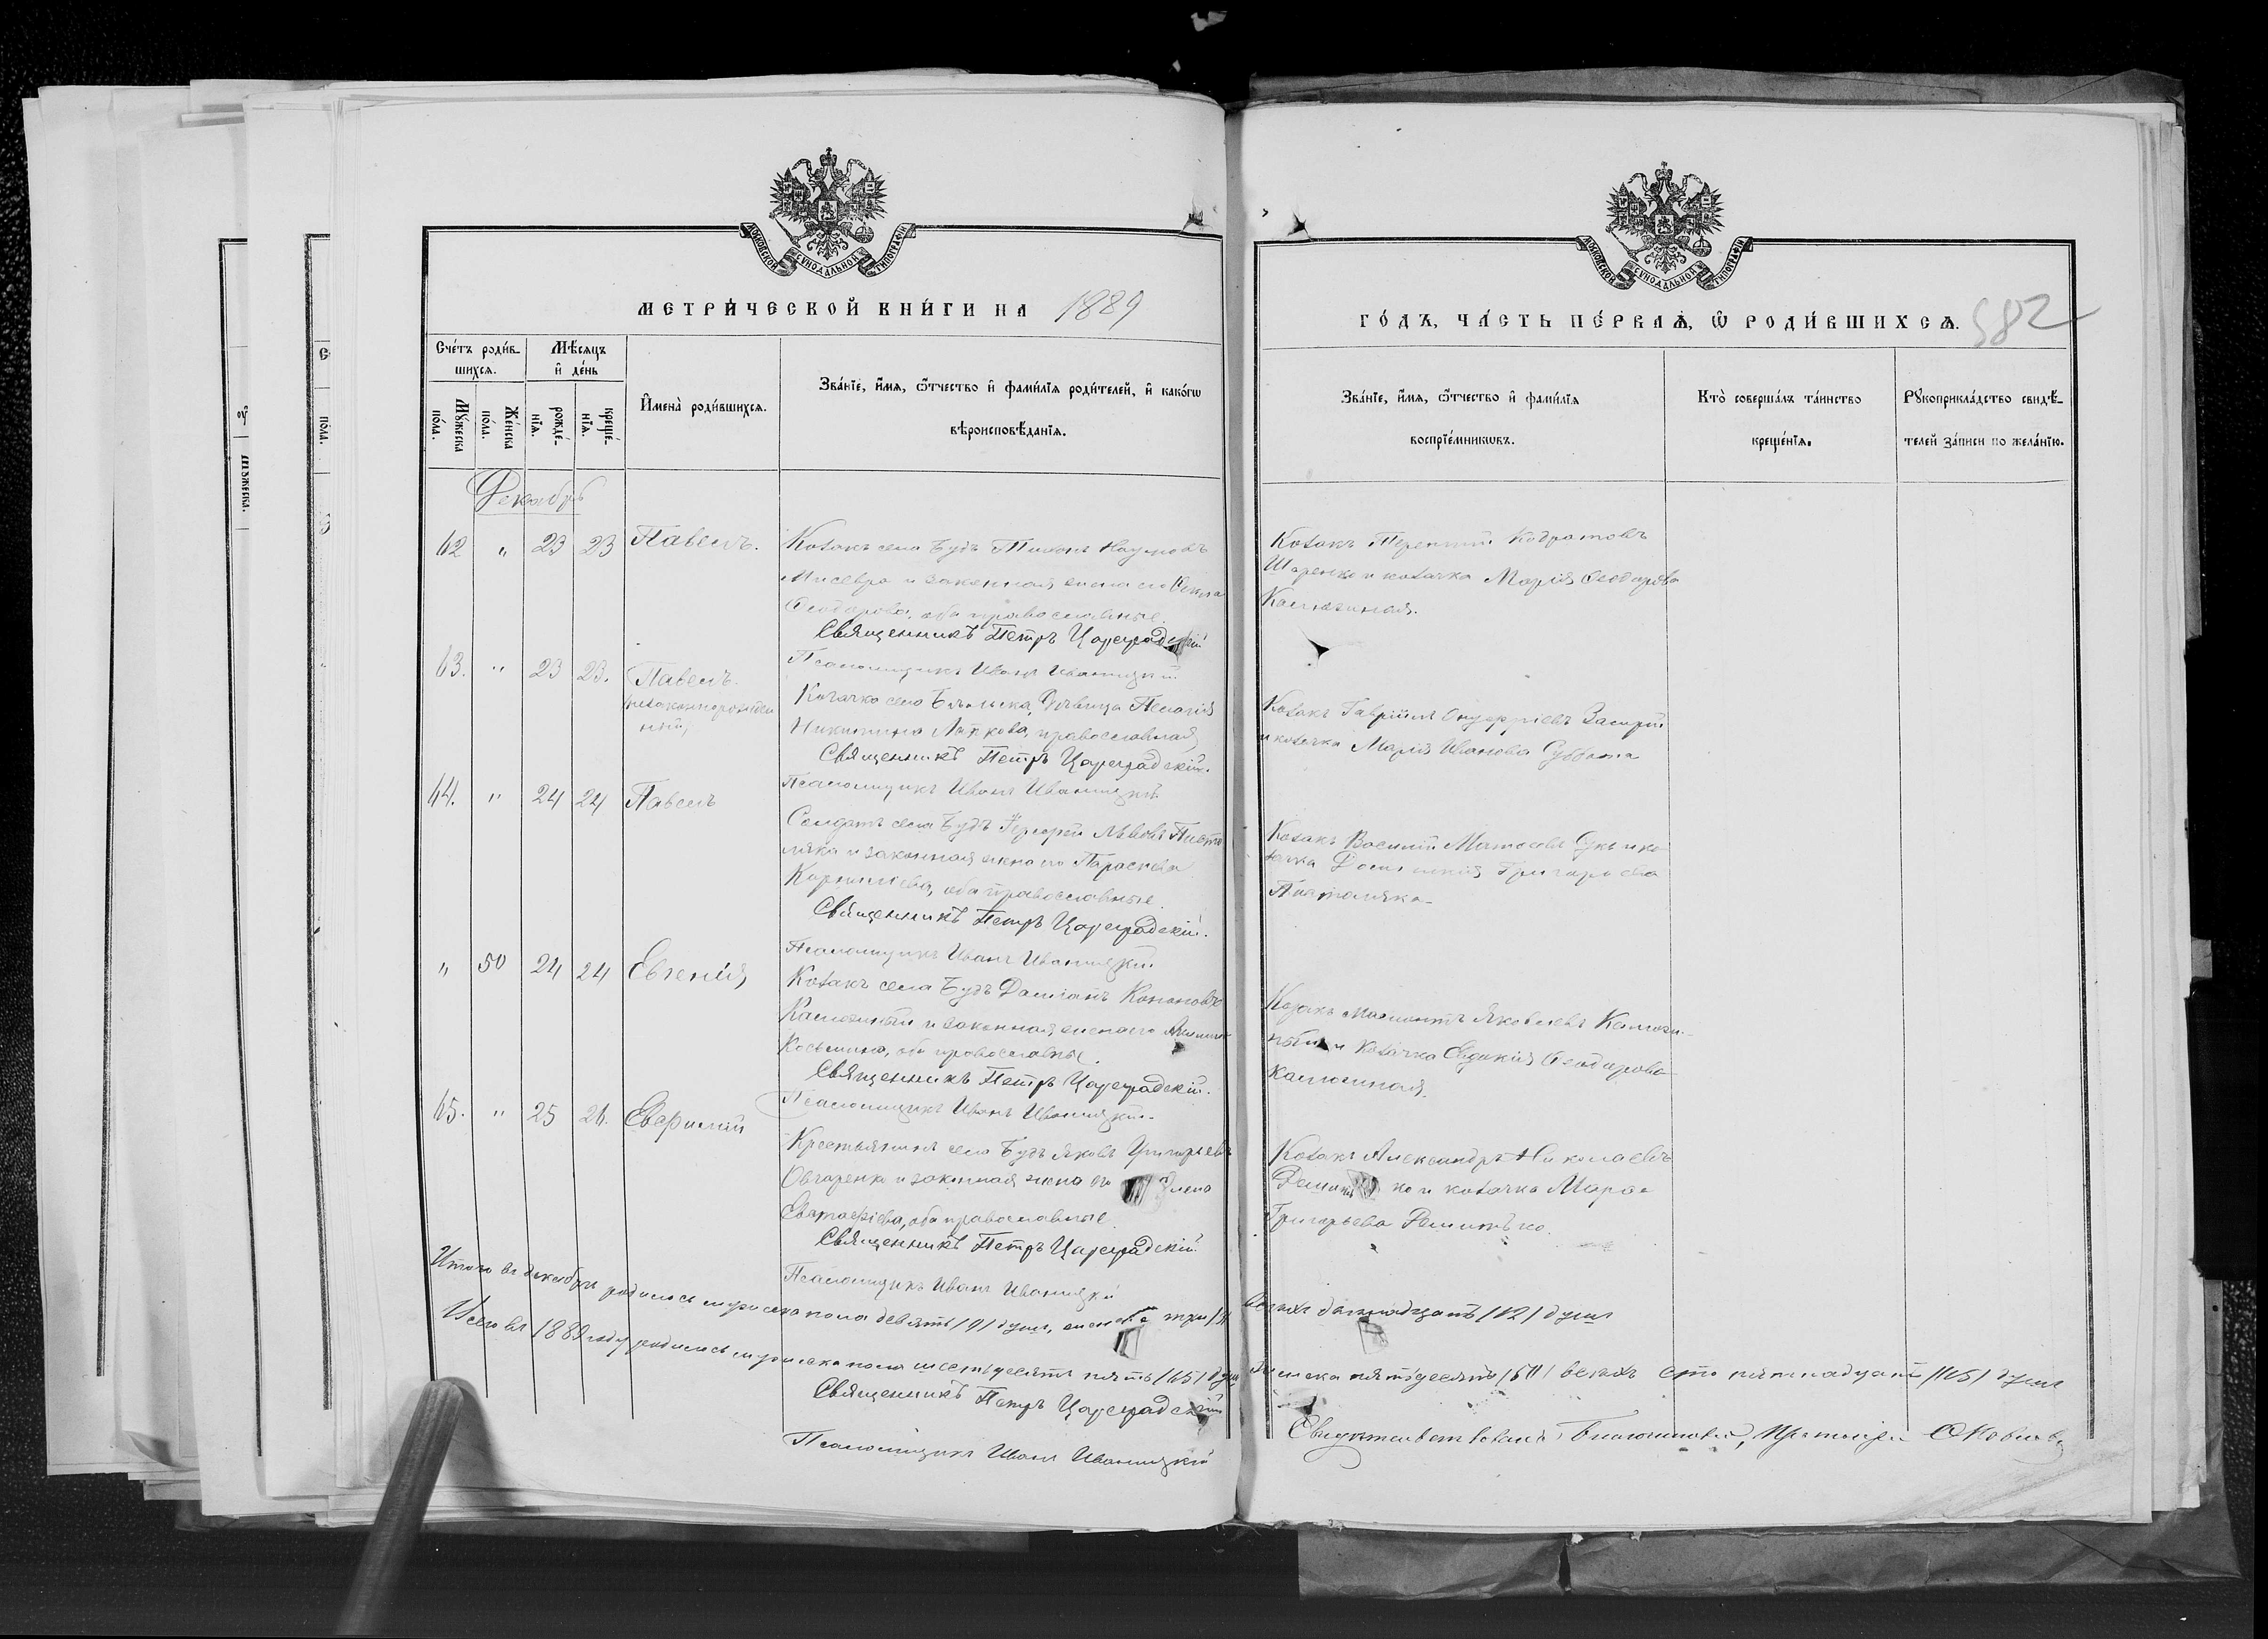 МОСКОВСКОЙ СѴНОДАЛЬНОЙ ТИПОГРАФІИ
МЕТРИ́ЧЕСКОЙ КНИ́ГИ НА 1889
Сче́тъ роди́в-
шихсѧ.
Мѣ́сѧцъ
и҆ де́нь
Мꙋ́жеска
по́ла.
Же́нска
по́ла.
рожде́-
нїѧ.
креще́-
нїѧ.
И҆мена̀ роди́вшихсѧ.
Зва́нїе, и҆́мѧ, ѻ҆́тчество и҆ фами́лїѧ роди́телей, и҆ како́гѡ
вѣроисповѣ́данїѧ.
Декабрь
62 " 23 23 Павелъ.
Козакъ села Будъ Тихонъ Наумовъ
и законная жена его
Ѳеодорова, оба православные.
Священникъ Петръ Цареградскій
Псаломщикъ Иванъ Иваницкій
63. " 23 23. Павелъ.
незаконнорожден
ный,
Козачка села девица Пелагія
Никитина православная
Священникъ Петръ Цареградскій.
Псаломщикъ Иванъ Иваницкій.
64. " 24 24 Павелъ
Солдатъ села Будъ
и законная жена его Параскева
Корниліева, оба православные.
Священникъ Петръ Цареградскій.
Псаломщикъ Иванъ Иваницкій
" 50 24 24 Евгенія
Козакъ села Будъ Даміанъ Кононовъ
Калюжный и законная жена его
Косьмина, оба православные.
Священникъ Петръ Цареградскій.
Псаломщикъ Иванъ Иваницкій.
65. " 25 26. Евфимій
Крестьянинъ села Будъ Яковъ Григорьевъ
Овчаренко и законная жена его
Евстафіева, оба православные.
Священникъ Петръ Цареградскій
Псаломщикъ Иванъ Иваницкій
Итого въ декабрѣ родилось мужеска пола девять /9/ душъ, женска три /3/
Всего въ 1889 году родилось мужеска пола шестьдесятъ пять /65/ душ
Священникъ Петръ Цареградскій
Псаломщикъ Иванъ Иваницкій
МОСКОВСКОЙ СѴНОДАЛЬНОЙ ТИПОГРАФІИ
ГО́ДЪ, ЧА́СТЬ ПЕ́РВАѦ, Ѽ РОДИ́ВШИХСѦ. 582
Зва́нїе, и҆́мѧ, ѻ҆́тчество и҆ фами́лїѧ
воспрїе́мникѡвъ.
Кто̀ соверша́лъ та́инство
креще́нїѧ.
Рꙋкоприкла́дство свидѣ́-
телей за́писи по жела́нїю.
Козакъ Терентій Кодратовъ
и козачка Марія Ѳеодорова
Калюжная.
Козакъ Гавріилъ Онуфріевъ
и козачка Марія Иванова Суббота
Козакъ Василій и ко
зачка Григорьева
Козакъ Яковлевъ Калюж
ный и козачка Евдокія Ѳеодорова
Калюжная.
Козакъ Александръ Николаевъ
и козачка
Григорьева
всѣхъ двенадцать /12/ душъ
женска пятьдесятъ /50/ всѣхъ сто пятнадцать /115/ душъ
Свидетельствовалъ Благочинный, Протоіерей